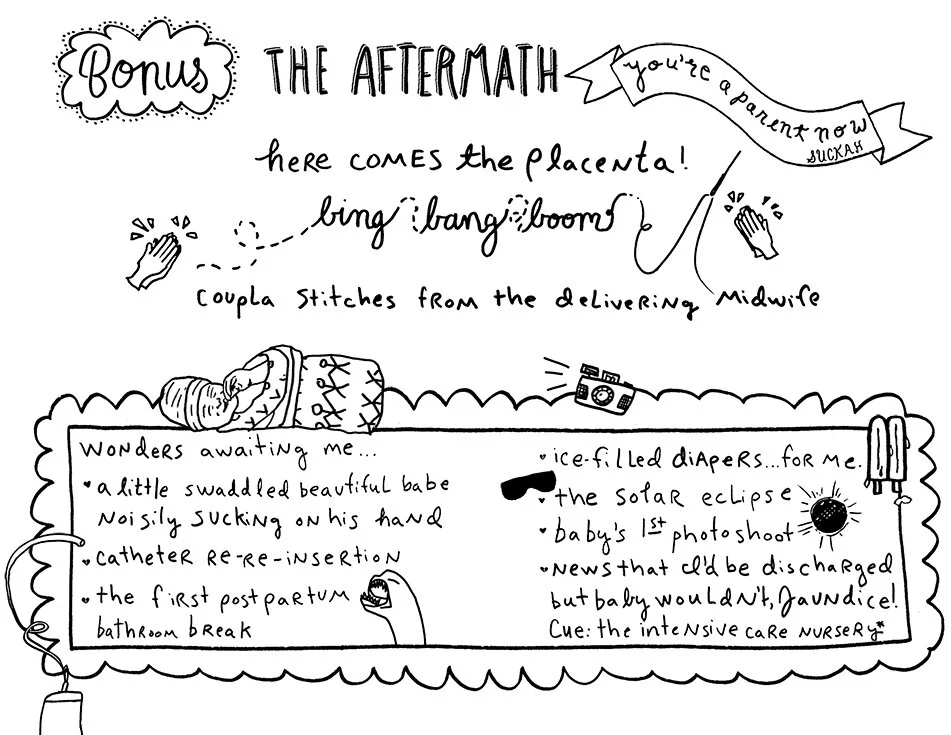 Bonus
THE AFTERMATH
you're a parent now
SUCKAH
here comes the placenta!
bing bang boom
coupla stitches from the delivering midwife
wonders awaiting me...
a little swaddled beautiful babe
noisily sucking on his hand
catheter re-re-insertion
the first postpartum
bathroom break
ice-filled diapers...for me.
the solar eclipse
baby's 1st photoshoot
news that I'd be discharged
but baby wouldn't, Jaundice!
Cue: the intensive care nursery*